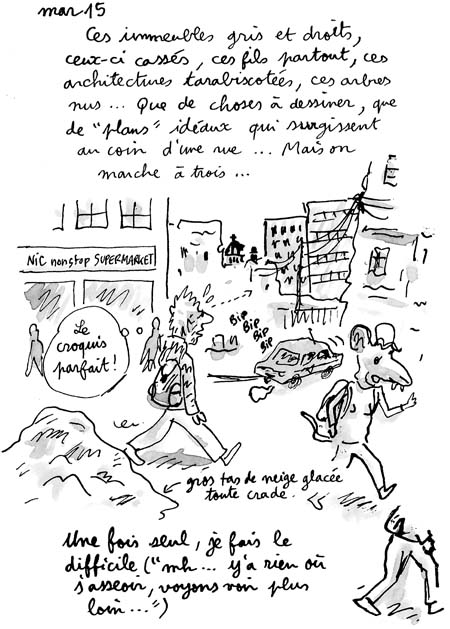 mar 15
Ces immeubles gris et droits,
ceux-ci cassés, ces fils partout, ces
architectures tarabiscotées, ces arbres
nus... Que de choses à dessiner, que
de "plans" idéaux qui surgissent
au coin d'une rue... Mais on
marche à trois...
NIC nonstop SUPERMARKET
Le
croquis
parfait!
Bip
Bip
Bip
Bip
gros tas de neige glacée
toute crade.
Une fois seul, je fais le
difficile ("mh... y'a rien où
s'asseoir, voyons voir plus
loin...")